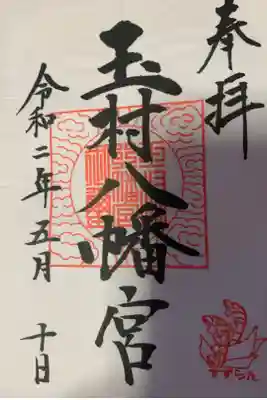 奉拝
玉村八幡宮
令和二年五月十日